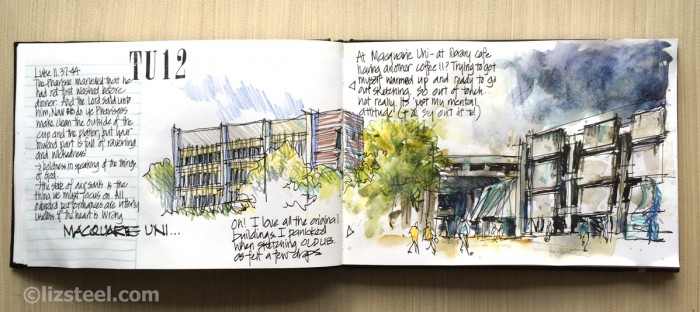 TU12
Luke 11.37-44
The Pharisee marvelled that he
had not first washed before
dinner. And the Lord said unto
him, Now do ye Pharisees
make clean the outside of the
cup and the platter; but your
inward part is full of ravening
and wickedness
→ boldness in speaking of the things
of God.
- the state of our souls is the
thing we must focus on. All
outward performances are utterly
useless if the heart is wrong.
MACQUARIE UNI...
Oh! I love all the original
buildings. I panicked
when sketching OLD LIB.
as felt a few drops
At Macquarie Uni - at library cafe
having another coffee!! Trying to get
myself warmed up and ready to go
out sketching. So out of touch
not really, it's just my mental
attitude
©lizsteel.com